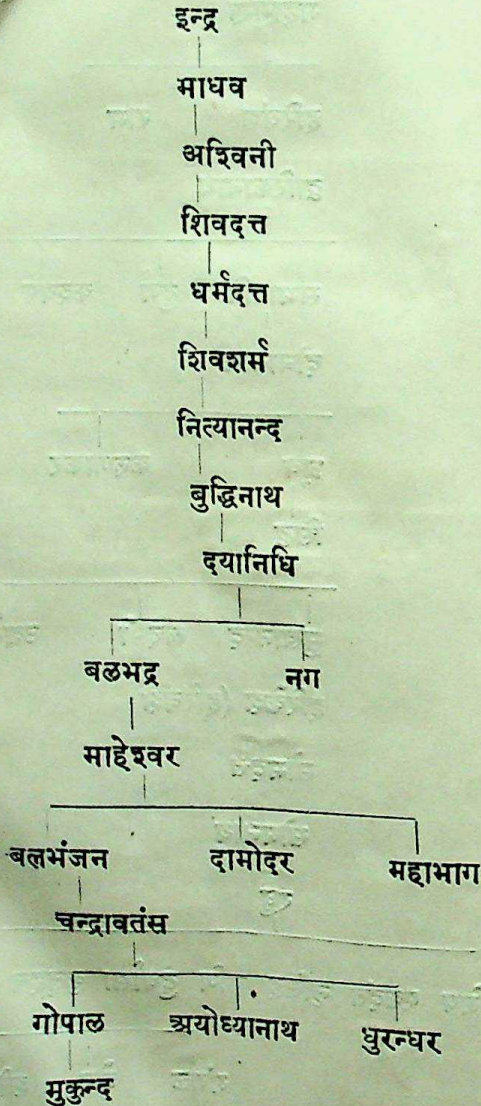 इन्द्र
माधव
अश्विनी
शिवदत्त
धर्मदत्त
शिवशर्म
नित्यानन्द
बुद्धिनाथ
दयानिधि
बळभद्र नग
माहेश्वर
बलभंजन दामोदर महाभाग
चन्द्रावतंस
गोपाल अयोध्यानाथ धुरन्धर
मुकुन्द